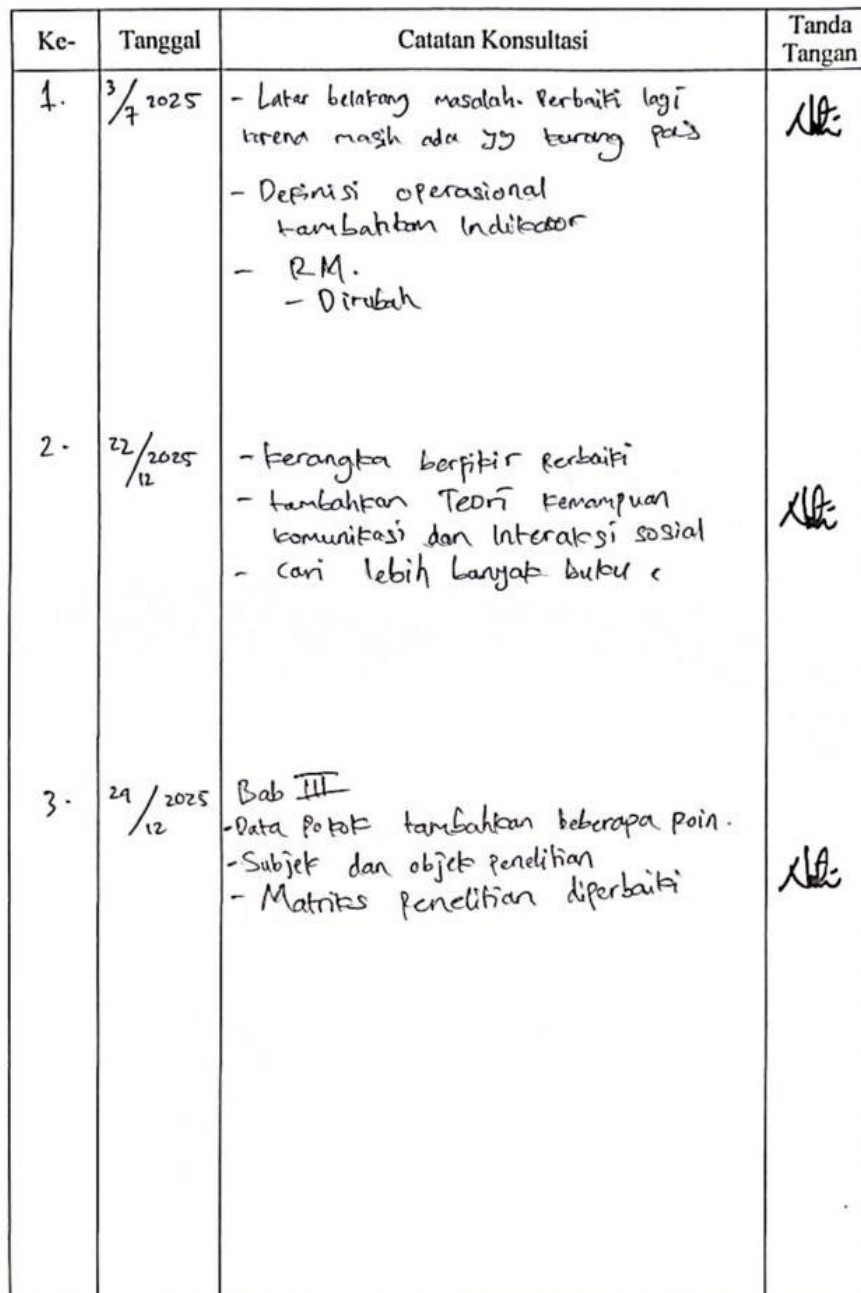 Ke- Tanggal Catatan Konsultasi Tanda Tangan
1. 3/7 2025 - Latar belakang masalah. Perbaiki lagi
karena masih ada yg kurang pas
- Definisi operasional
tambahkan Indikator
- RM.
- Dirubah
2. 22/12 2025 - kerangka berfikir Perbaiki
- tambahkan Teori kemampuan
komunikasi dan Interaksi sosial
- Cari lebih banyak buku
3. 29/12 2025 Bab III
- Data Pokok tambahkan beberapa poin.
- Subjek dan objek penelitian
- Matriks Penelitian diperbaiki